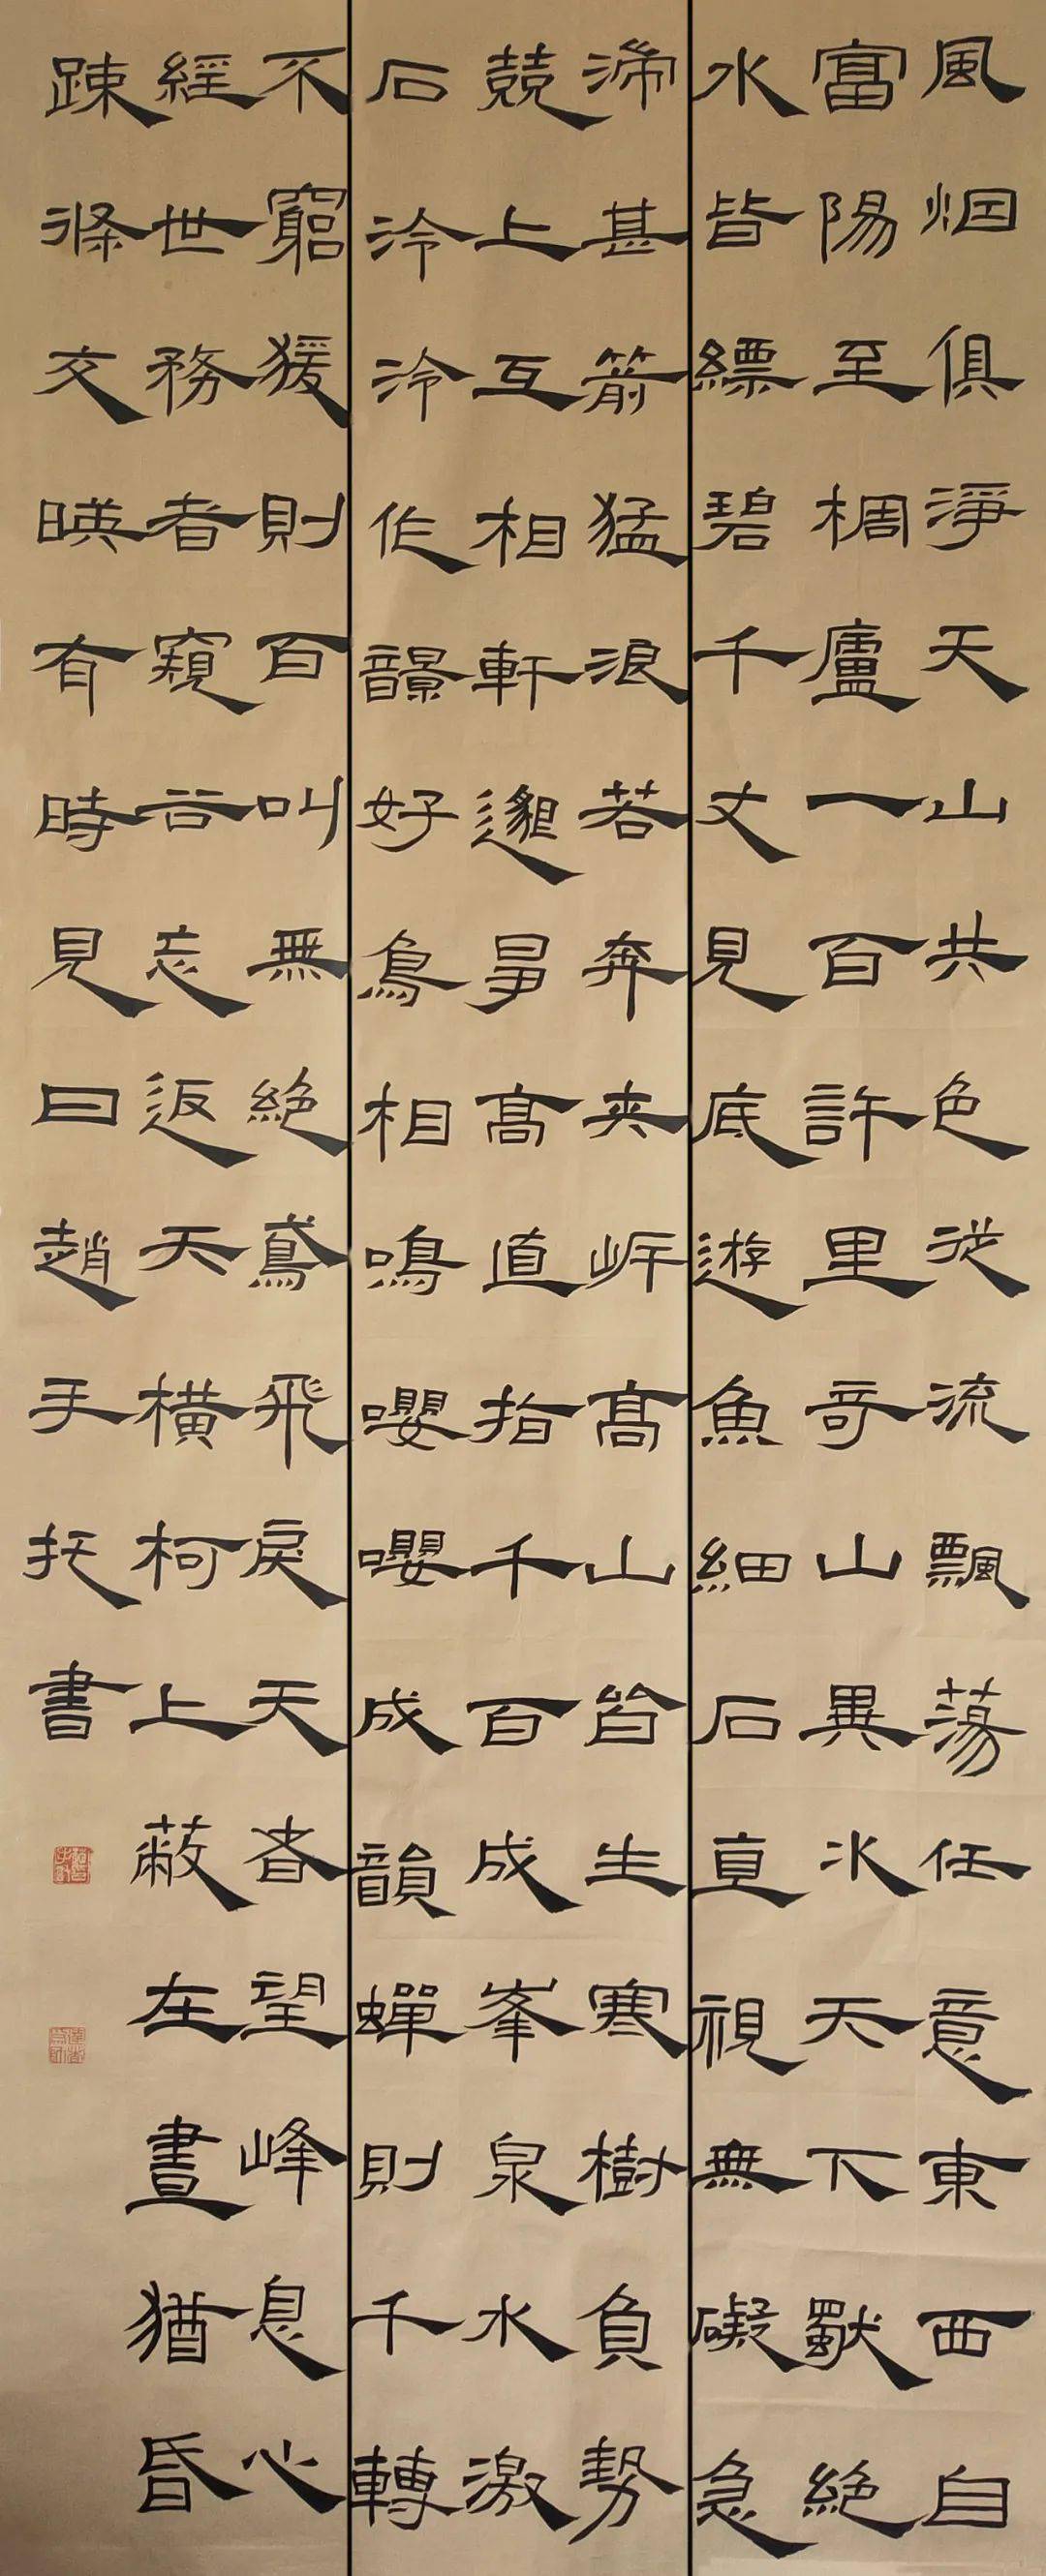 風烟俱淨天山共色從流飄蕩任意東西自
富陽至桐廬一百許里奇山異水天下獨絕
水皆縹碧千丈見底遊魚細石直視無礙急
湍甚箭猛浪若奔夾岸高山皆生寒樹負勢
競上互相軒邈爭高直指千百成峯泉水激
石泠泠作響好鳥相鳴嚶嚶成韻蟬則千轉
不窮猨則百叫無絕鳶飛戾天者望峰息心
經世務者窺谷忘返天橫柯上蔽在晝猶昏
疎條交暎有時見日趙手書